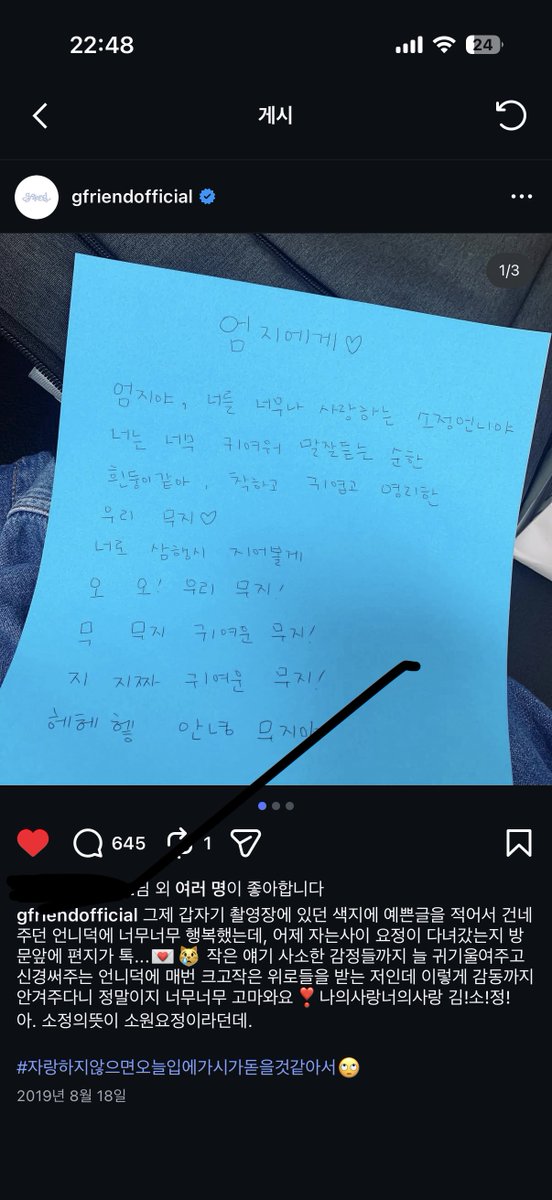 22:48
24
게시
gfriendofficial
1/3
엄지에게♡
엄지야, 너를 너무나 사랑하는 소정언니야
너는 너무 귀여워 말잘듣는 순한
흰둥이같아, 착하고 귀엽고 영리한
우리 무지♡
너로 삼행시 지어볼게
오 오! 우리 무지!
무 무지 귀여운 무지!
지 지짜 귀여운 무지!
헤헤헿 안녕 무지야
645
1
님 외 여러 명이 좋아합니다
gfriendofficial 그제 갑자기 촬영장에 있던 색지에 예쁜글을 적어서 건네
주던 언니덕에 너무너무 행복했는데, 어제 자는사이 요정이 다녀갔는지 방
문앞에 편지가 톡...💌😿 작은 얘기 사소한 감정들까지 늘 귀기울여주고
신경써주는 언니덕에 매번 크고작은 위로들을 받는 저인데 이렇게 감동까지
안겨주다니 정말이지 너무너무 고마와요❣️나의사랑너의사랑 김!소!정!
아. 소정의뜻이 소원요정이라던데.
#자랑하지않으면오늘입에가시가돋을것같아서🙄
2019년 8월 18일